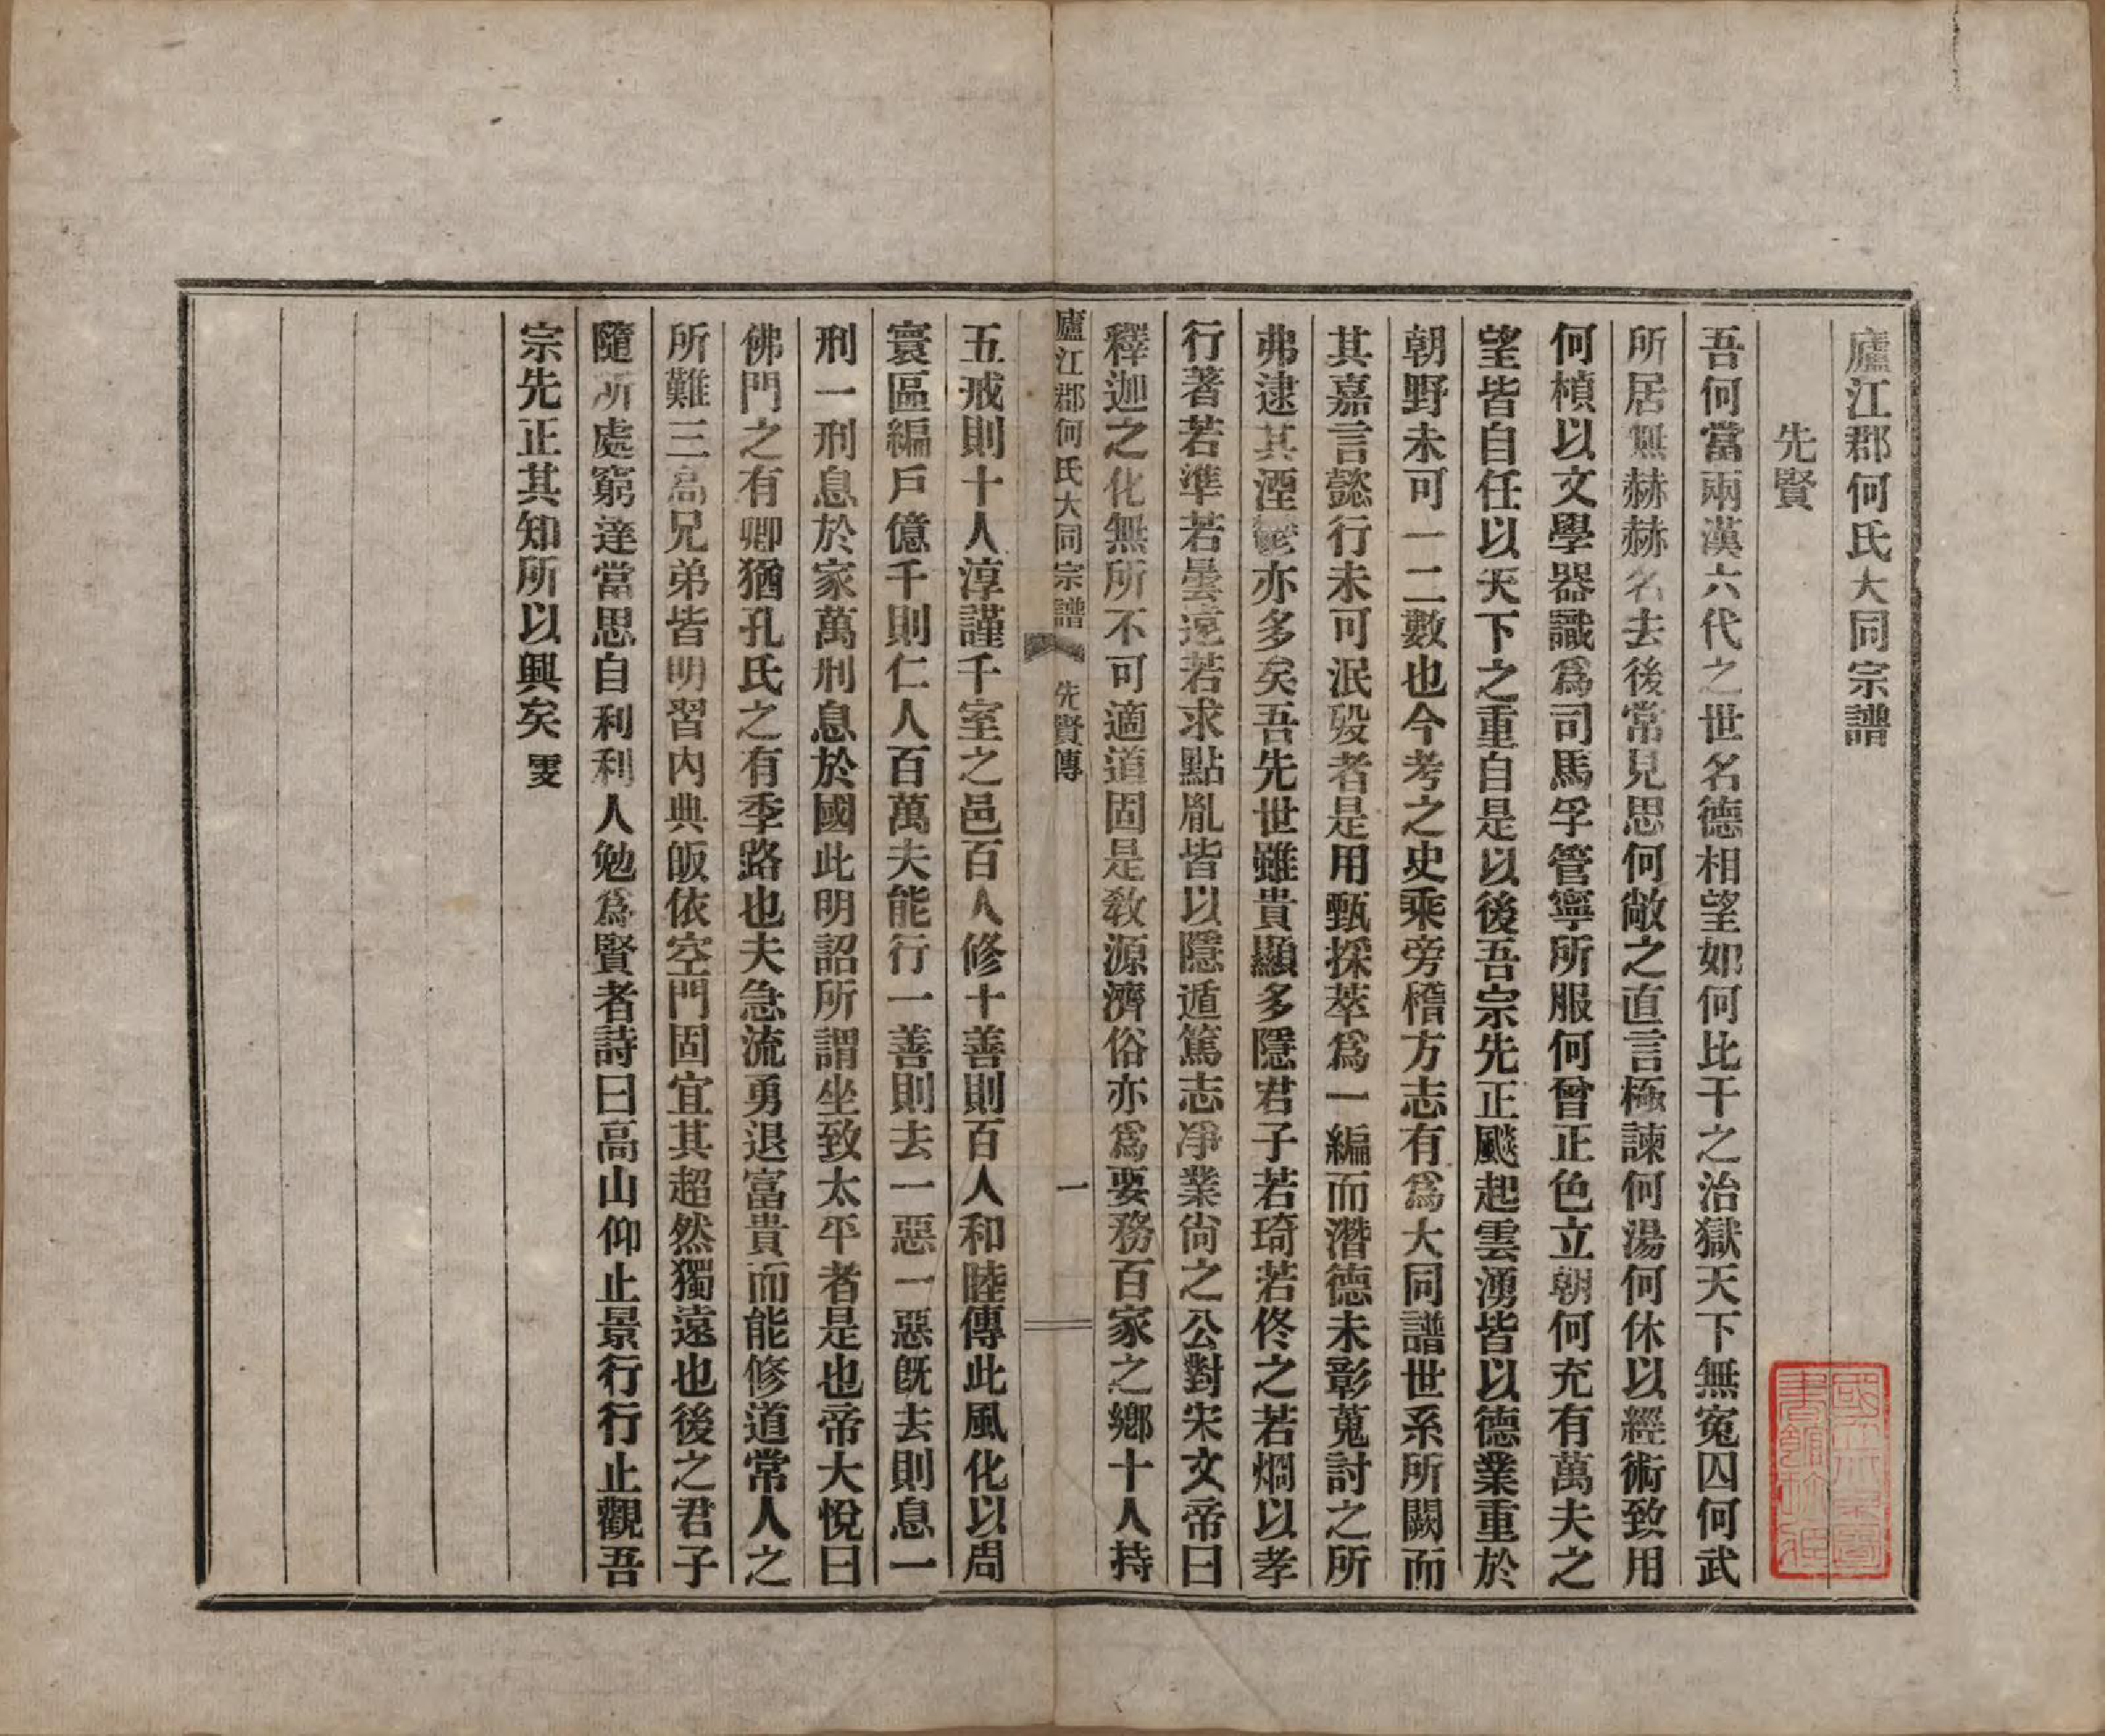 廬江郡何氏大同宗譜
先賢
吾何當兩漢六代之世名德相望如何比干之治獄天下無寃囚何武
所居無赫赫名去後常見思何敞之直言極諫何湯何休以經術致用
何楨以文學器識爲司馬孚管寧所服何曾正色立朝何充有萬夫之
望皆自任以天下之重自是以後吾宗先正飈起雲湧皆以德業重於
朝野未可一二數也今考之史乘旁稽方志有爲大同譜世系所闕而
其嘉言懿行未可泯歿者是用甄採萃爲一編而潛德未彰蒐討之所
弗逮其湮鬱亦多矣吾先世雖貴顯多隱君子若琦若佟之若烱以孝
行著若準若曇遠若求點胤皆以隱遁篤志凈業尙之公對宋文帝曰
釋迦之化無所不可適道固是敎源濟俗亦爲要務百家之鄕十人持
廬江郡何氏大同宗譜 先賢傳 一
五戒則十人淳謹千室之邑百人修十善則百人和睦傳此風化以周
寰區編戶億千則仁人百萬夫能行一善則去一惡一惡旣去則息一
刑一刑息於家萬刑息於國此明詔所謂坐致太平者是也帝大悅曰
佛門之有卿猶孔氏之有季路也夫急流勇退富貴而能修道常人之
所難三高兄弟皆明習內典皈依空門固宜其超然獨遠也後之君子
隨所處窮達當思自利利人勉爲賢者詩曰高山仰止景行行止觀吾
宗先正其知所以興矣 雯
國立北平圖
書館珍藏